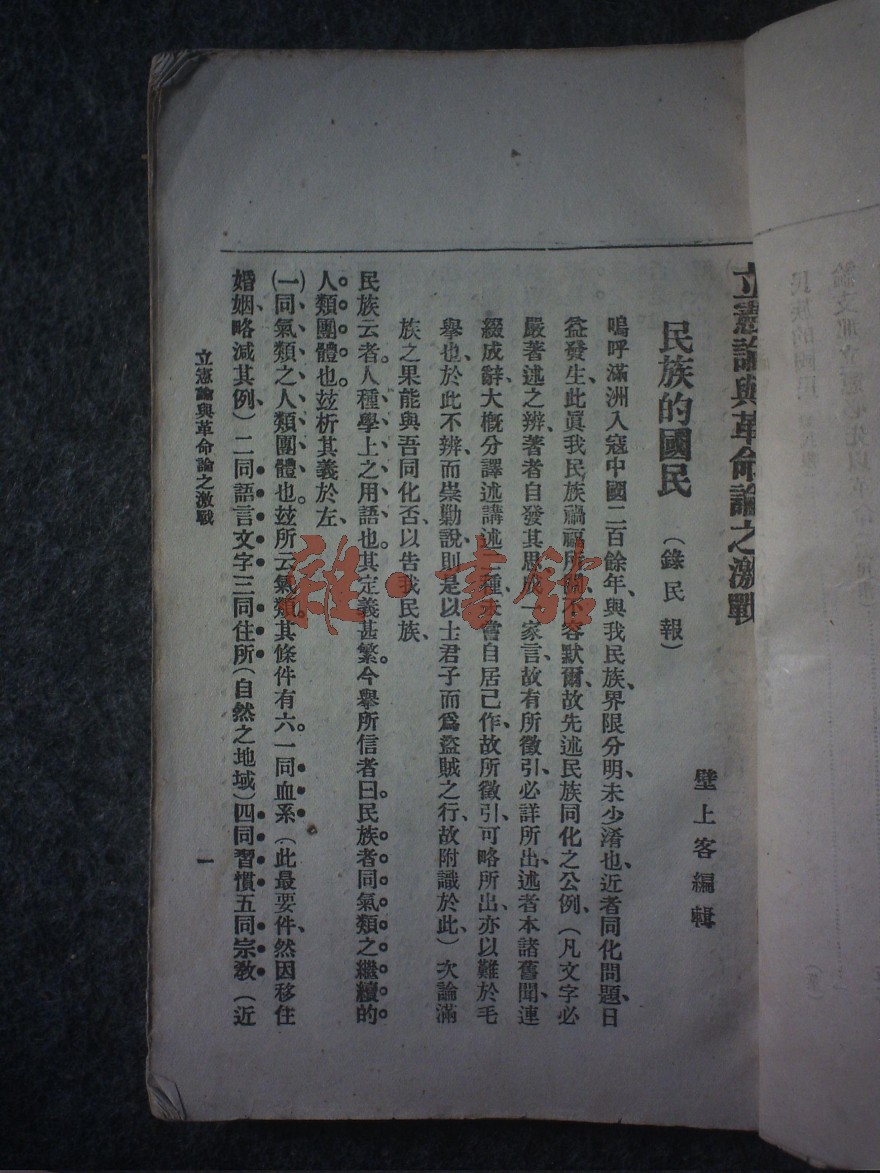 立憲論與革命論之激戰
壁上客編輯
民族的國民（錄民報）
嗚呼滿洲入寇中國二百餘年、與我民族界限分明、未少淆也、近者同化問題、日
益發生、此眞我民族禍福所關、不容默爾、故先述民族同化之公例、（凡文字必
嚴著述之辨、著者自發其思、成一家言、故有所徵引、必詳所出、述者本諸舊聞、連
綴成辭、大概分譯述講述二種、書自居己作、故所徵引、可略所出、亦以難於毛
舉也、於此不辨、而崇勦說、則是以士君子而爲盜賊之行、故附識於此）次論滿
族之果能與吾同化否、以告我民族、
民族云者、人種學上之用語也、其定義甚繁、今舉所信者曰、民族者同氣類之繼續的
人類團體也、玆析其義於左、
（一）同氣類之人類團體也、玆所云氣類、其條件有六、一同血系（此最要件、然因移住
婚姻、略減其例）二同語言文字三同住所（自然之地域）四同習慣五同宗教（近
立憲論與革命論之激戰
一
雜·書館